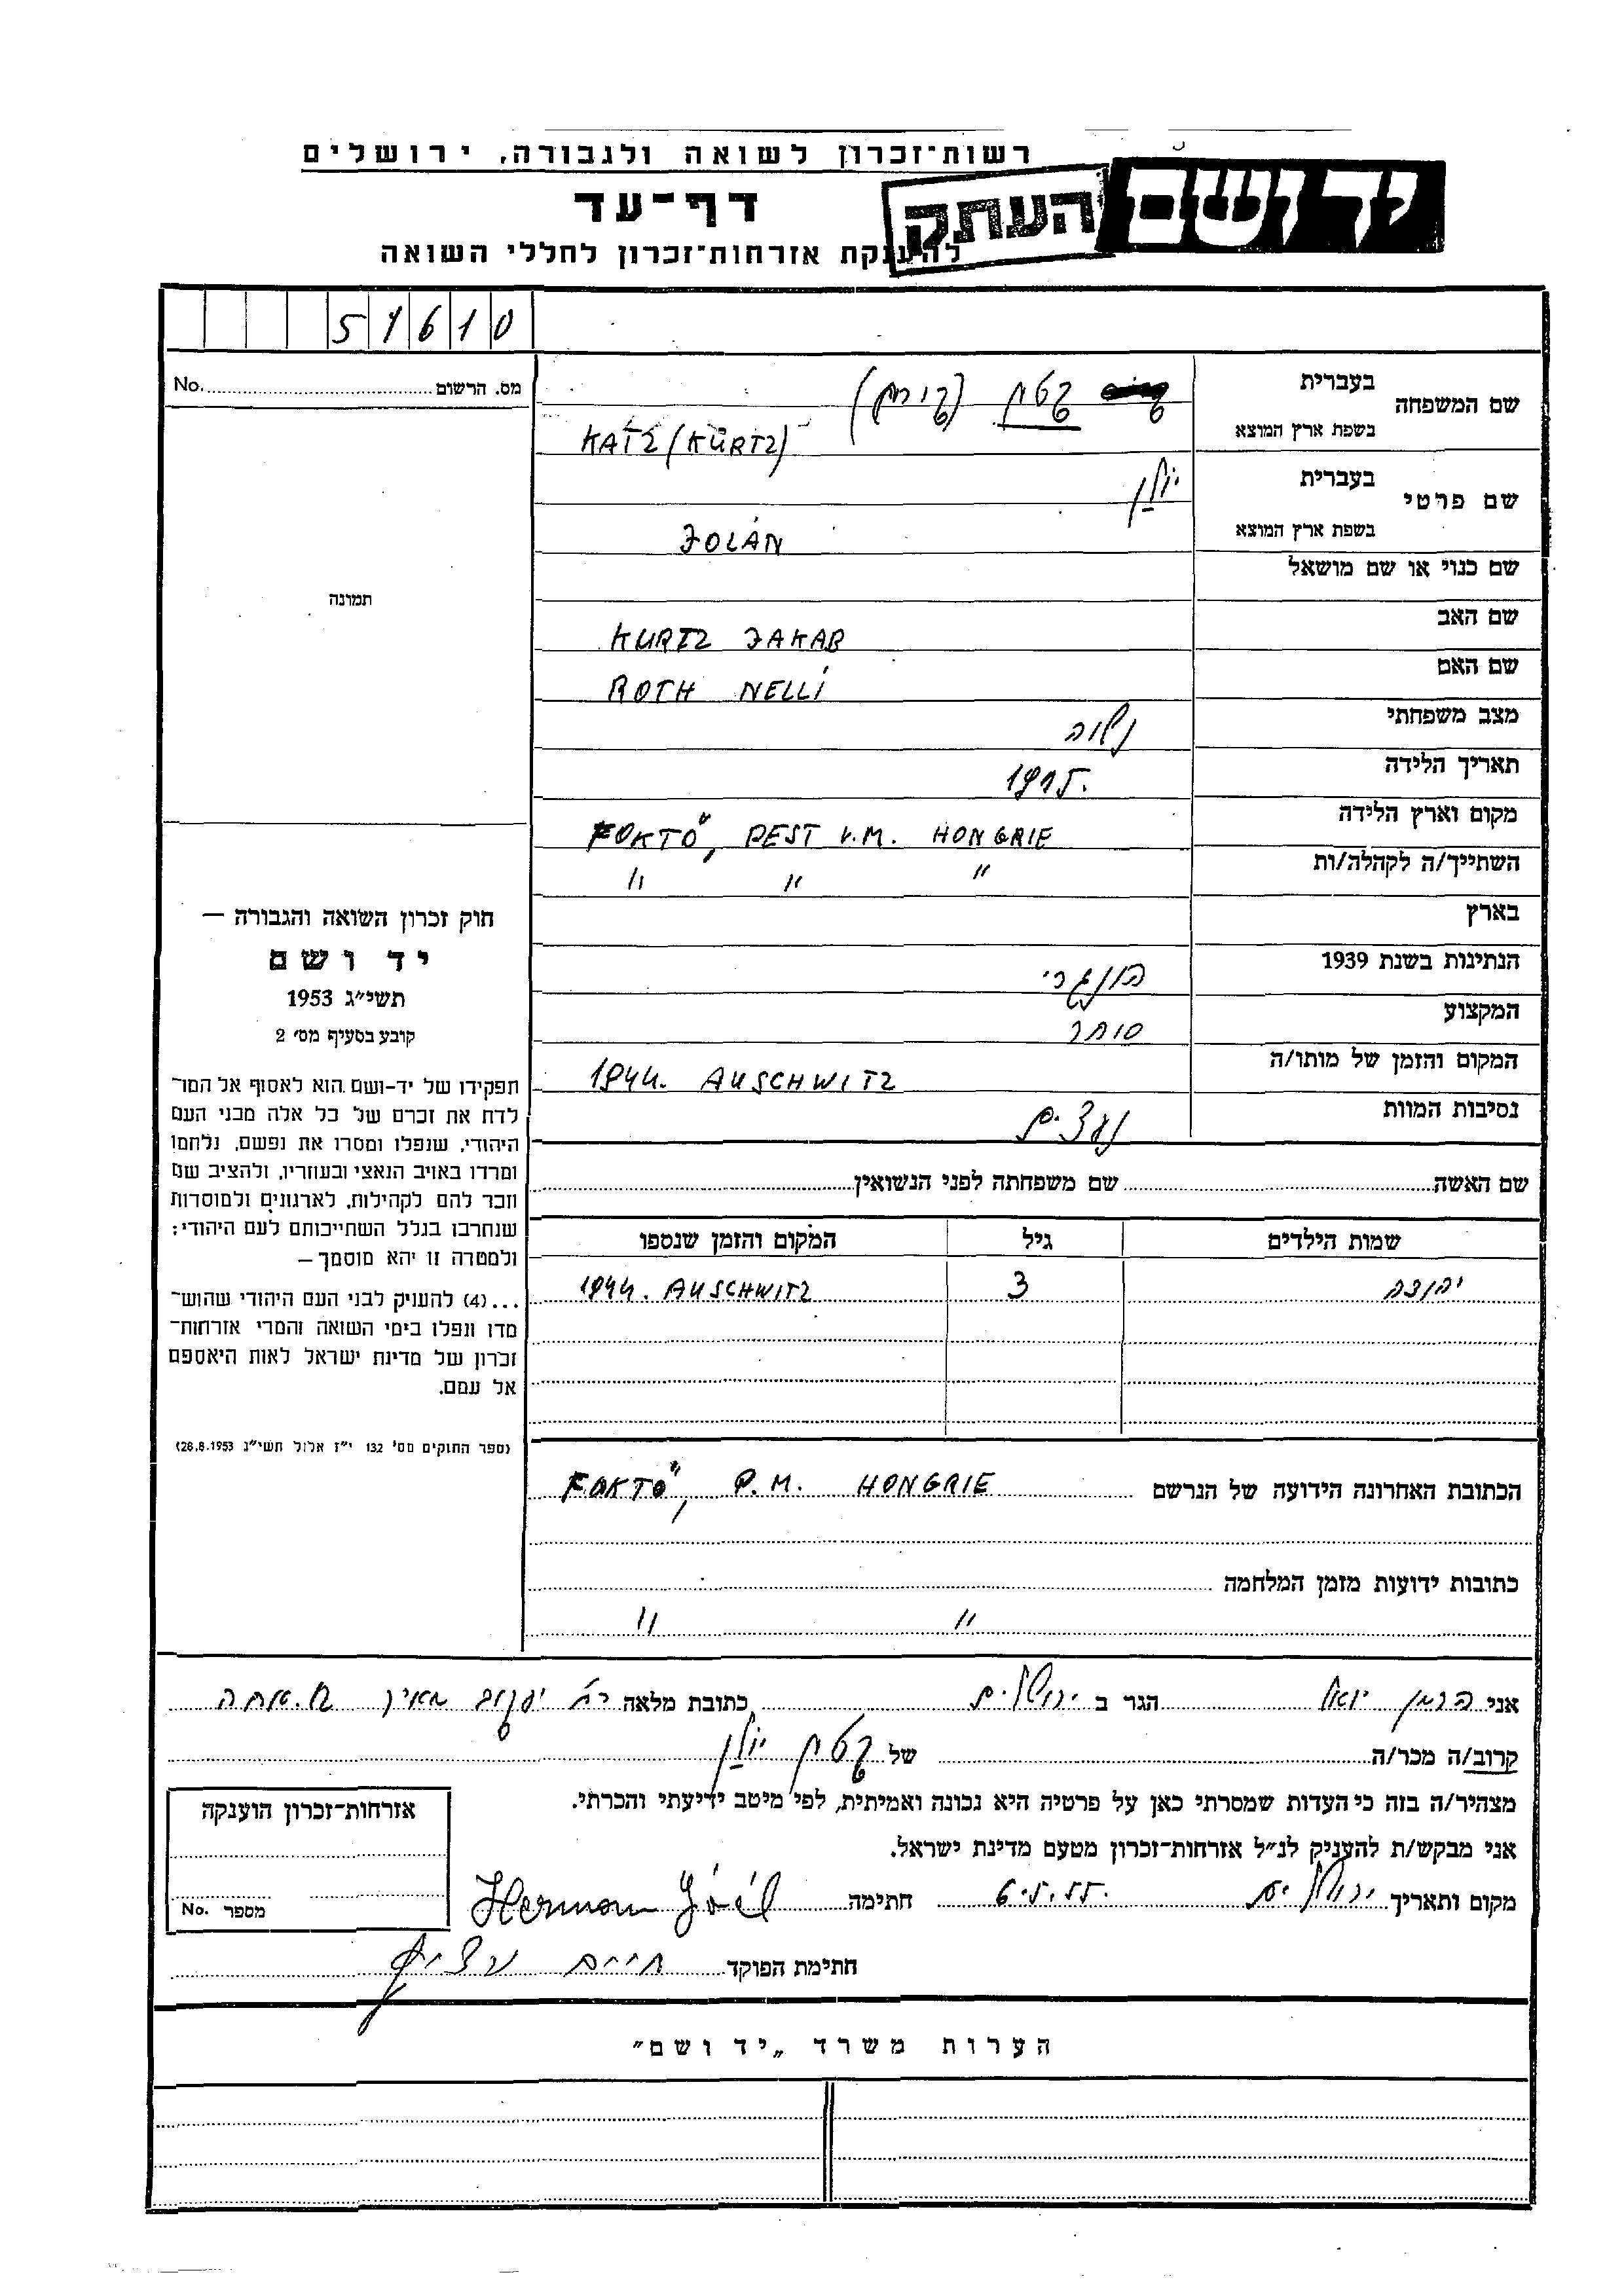 רשות־זכרון לשואה ולגבורה, ירושלים
יד ושם
העתק
דף־עד
להענקת אזרחות־זכרון לחללי השואה
51610
מס. הרשום No.
שם המשפחה
בעברית
קטץ (קירץ)
בשפת ארץ המוצא
KATZ (KÜRTZ)
שם פרטי
בעברית
יולן
בשפת ארץ המוצא
JOLÁN
שם כנוי או שם מושאל
שם האב
KURTZ JAKAB
שם האם
ROTH NELLI
מצב משפחתי
נשוה
תאריך הלידה
1915.
מקום וארץ הלידה
FOKTŐ, PEST V.M. HONGRIE
השתייך/ה לקהלה/ות
" " "
בארץ
הנתינות בשנת 1939
הונגרי
המקצוע
סוחר
המקום והזמן של מותו/ה
1944. AUSCHWITZ
נסיבות המוות
שם האשה
שם משפחתה לפני הנשואין
שמות הילדים גיל המקום והזמן שנספו
יהודה 3 1944. AUSCHWITZ
הכתובת האחרונה הידועה של הנרשם FOKTŐ, P.M. HONGRIE
כתובות ידועות מזמן המלחמה
" "
תמונה
חוק זכרון השואה והגבורה —
יד ושם
תשי״ג 1953
קובע בסעיף מס׳ 2
תפקידו של יד־ושם הוא לאסוף אל המו־
לדת את זכרם של כל אלה מבני העם
היהודי, שנפלו ומסרו את נפשם, נלחמו
ומרדו באויב הנאצי ובעוזריו, ולהציב שם
וזכר להם לקהילות, לארגונים ולמוסדות
שנחרבו בגלל השתייכותם לעם היהודי;
ולמטרה זו יהא מוסמך —
...(4) להעניק לבני העם היהודי שהוש־
מדו ונפלו בימי השואה והמרי אזרחות־
זכרון של מדינת ישראל לאות היאספם
אל עמם.
(ספר החוקים מס׳ 132 י״ז אלול תשי״ג 28.8.1953)
אני הרמן יואל הגר ב ירושלים כתובת מלאה
קרוב/ה מכר/ה של קטץ יולן
מצהיר/ה בזה כי העדות שמסרתי כאן על פרטיה היא נכונה ואמיתית, לפי מיטב ידיעתי והכרתי.
אני מבקש/ת להעניק לנ״ל אזרחות־זכרון מטעם מדינת ישראל.
מקום ותאריך ירושלים 6.5.55. חתימה Herman Jóél
חתימת הפוקד חיים
אזרחות־זכרון הוענקה
מספר No.
הערות משרד „יד ושם״